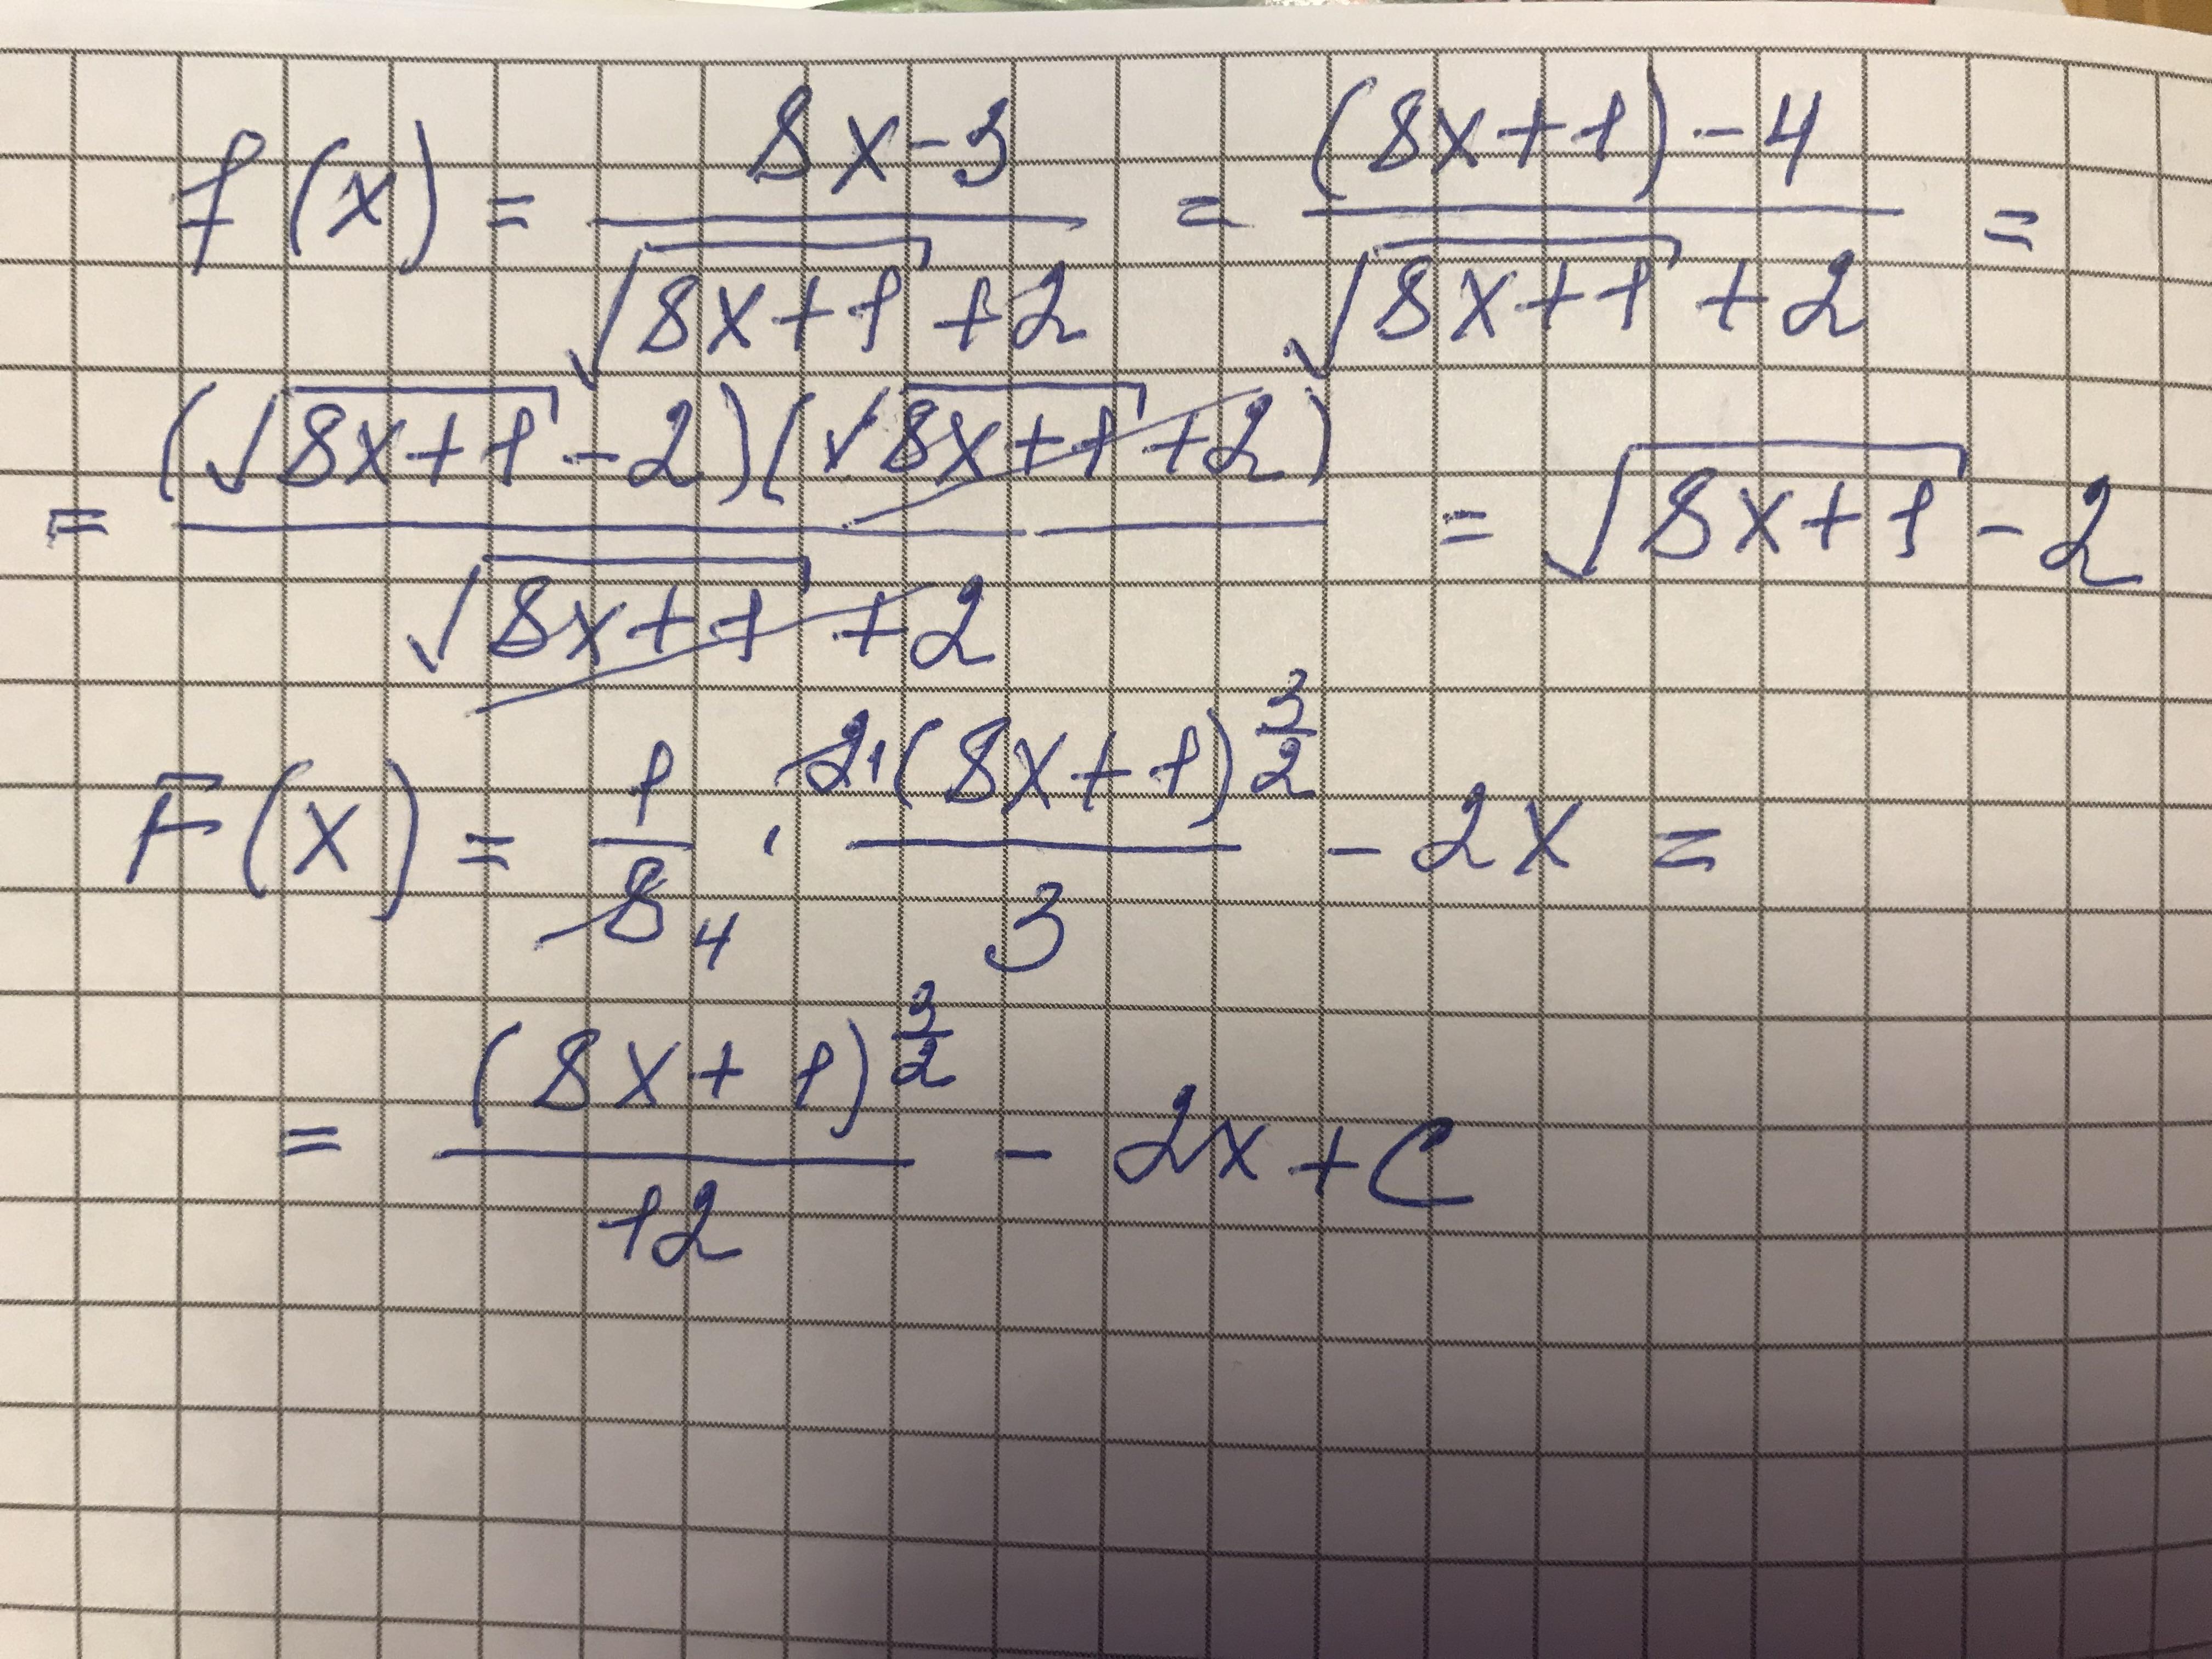 f(x) = (8x-3)/(√(8x+1) +2) = ((8x+1)-4)/(√(8x+1) +2) =
= ((√(8x+1) -2)(√(8x+1) +2))/(√(8x+1) +2) = √(8x+1) -2
F(x) = 1/8 4 · 2 1 (8x+1)^(3/2)/3 - 2x =
= (8x+1)^(3/2)/12 - 2x + C